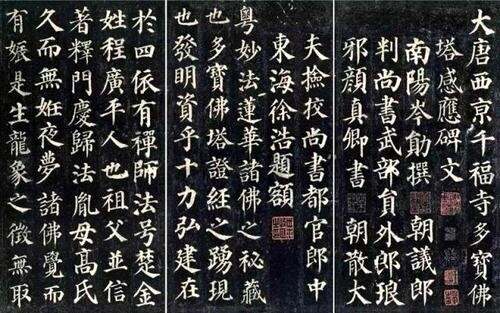 大唐西京千福寺多寶佛
塔感應碑文
南陽岑勛撰 朝議郎
判尚書武部員外郎琅
邪顏真卿書 朝散大
夫撿挍尚書都官郎中
東海徐浩題額
粵妙法蓮華諸佛之秘藏
也多寶佛塔證經之踴現
也發明資乎十力弘建在
於四依有禪師法号楚金
姓程廣平人也祖父並信
著釋門慶歸法胤母高氏
久而無姙夜夢諸佛覺而
有娠是生龍象之徵無取